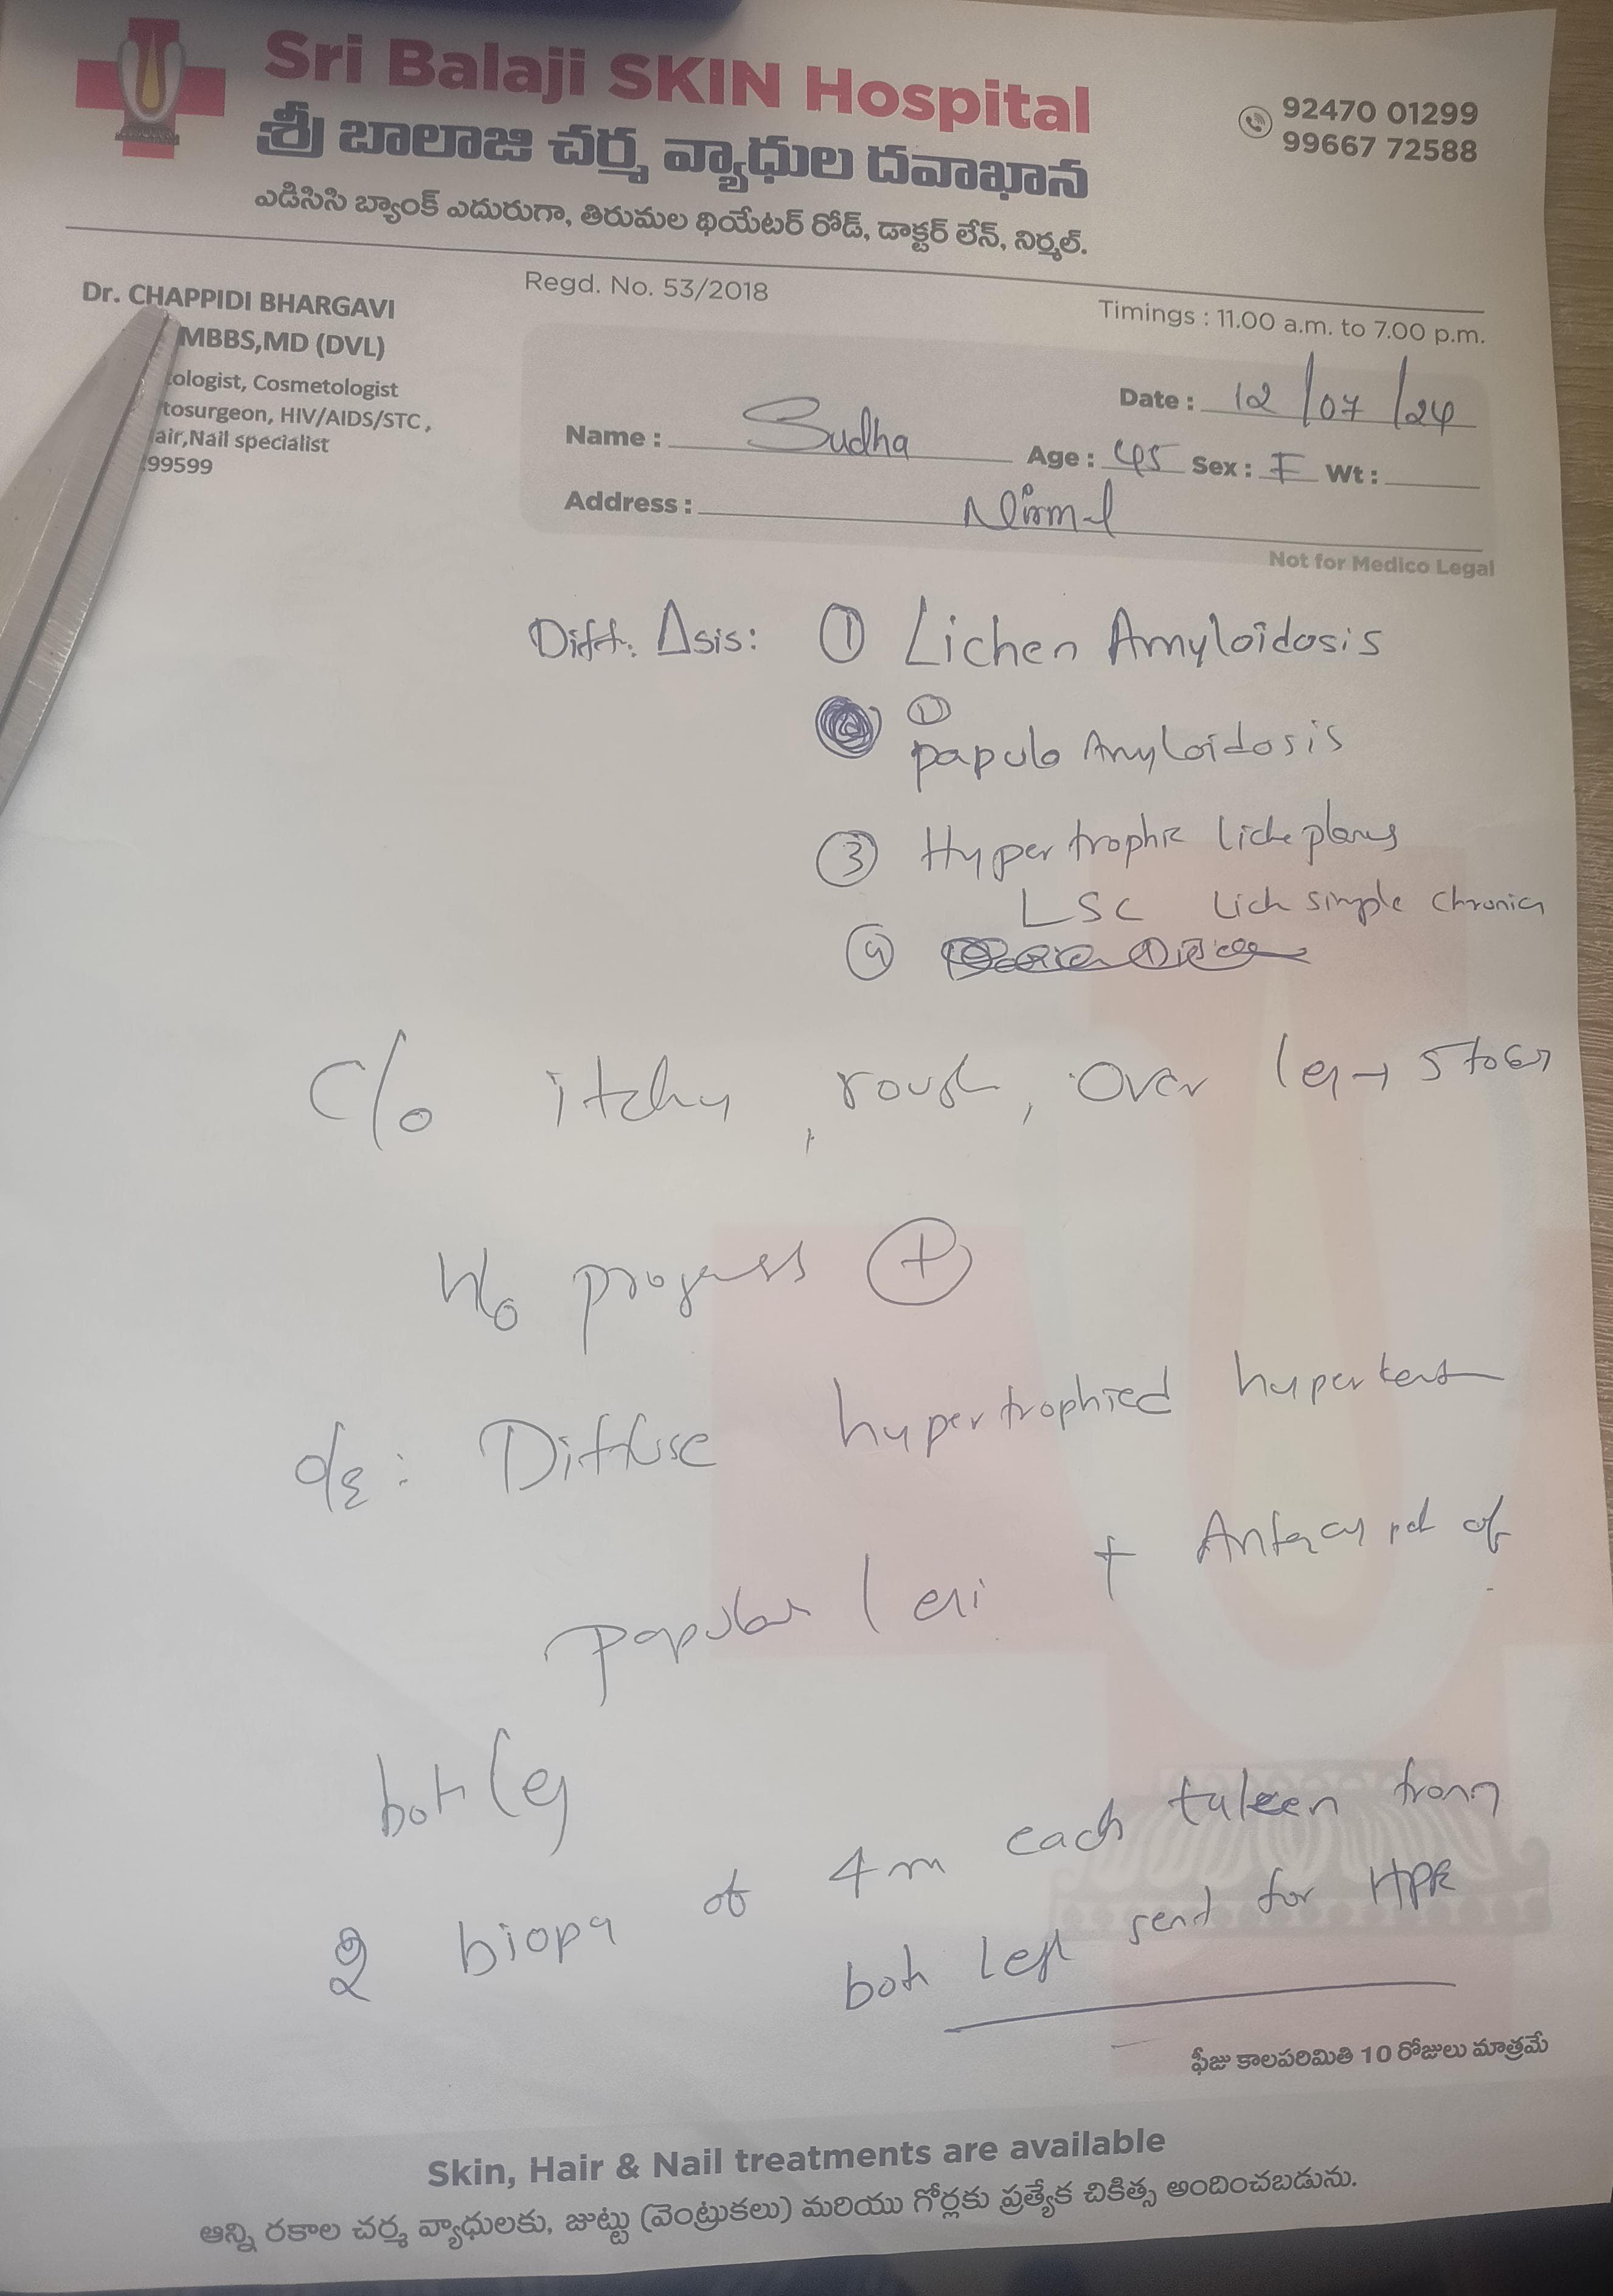 Sri Balaji SKIN Hospital
శ్రీ బాలాజి చర్మ వ్యాధుల దవాఖాన
ఎడిసిసి బ్యాంక్ ఎదురుగా, తిరుమల థియేటర్ రోడ్, డాక్టర్ లేన్, నిర్మల్.
92470 01299
99667 72588
Regd. No. 53/2018
Timings : 11.00 a.m. to 7.00 p.m.
Dr. CHAPPIDI BHARGAVI
MBBS,MD (DVL)
ologist, Cosmetologist
tosurgeon, HIV/AIDS/STC,
air,Nail specialist
99599
Date : 12/07/24
Name : Sudha Age : 45 Sex : F Wt :
Address : Nirmal
Not for Medico Legal
Diff. Δsis: ① Lichen Amyloidosis
papulo Amyloidosis
③ Hypertrophic liche planus
LSC Lich simple chronics
④
C/o itchy, rough, over leg → 5 to 6
H/o progress ⊕
O/E: Diffuse hypertrophied
papular + of
both leg
2 biopsy of 4m each taken from
both left send for HPR
ఫీజు కాలపరిమితి 10 రోజులు మాత్రమే
Skin, Hair & Nail treatments are available
అన్ని రకాల చర్మ వ్యాధులకు, జుట్టు (వెంట్రుకలు) మరియు గోర్లకు ప్రత్యేక చికిత్స అందించబడును.